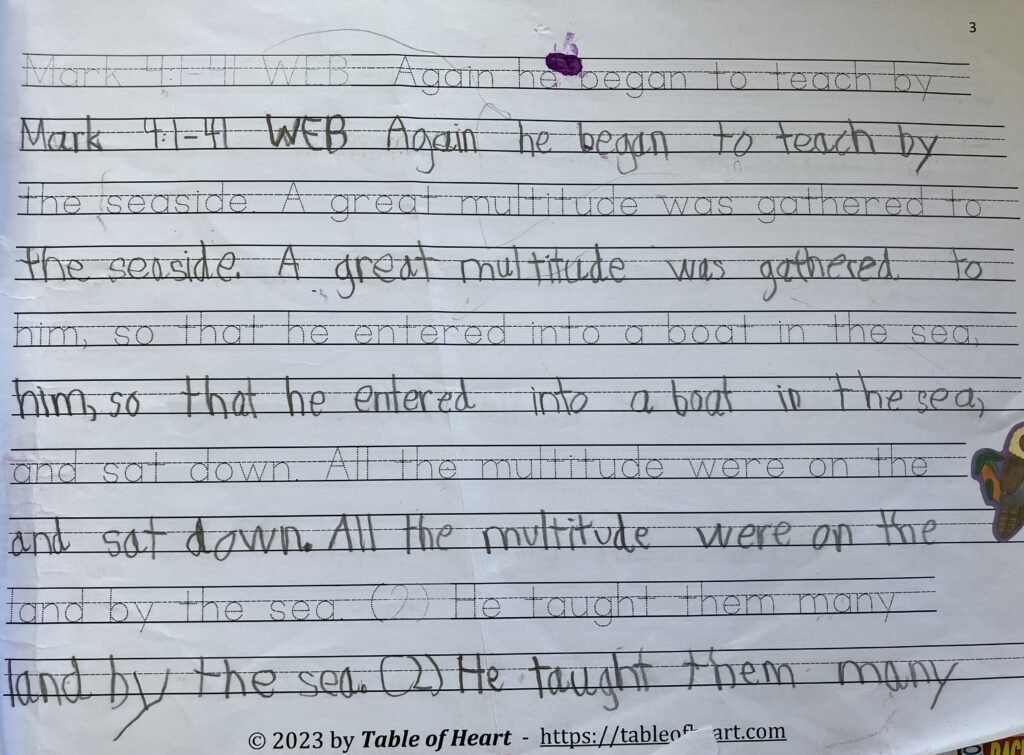 3
Mark 4:1-41 WEB Again he began to teach by
Mark 4:1-41 WEB Again he began to teach by
the seaside. A great multitude was gathered to
the seaside. A great multitude was gathered to
him, so that he entered into a boat in the sea,
him, so that he entered into a boat in the sea,
and sat down. All the multitude were on the
and sat down. All the multitude were on the
land by the sea. (2) He taught them many
land by the sea. (2) He taught them many
© 2023 by Table of Heart - https://tableof art.com